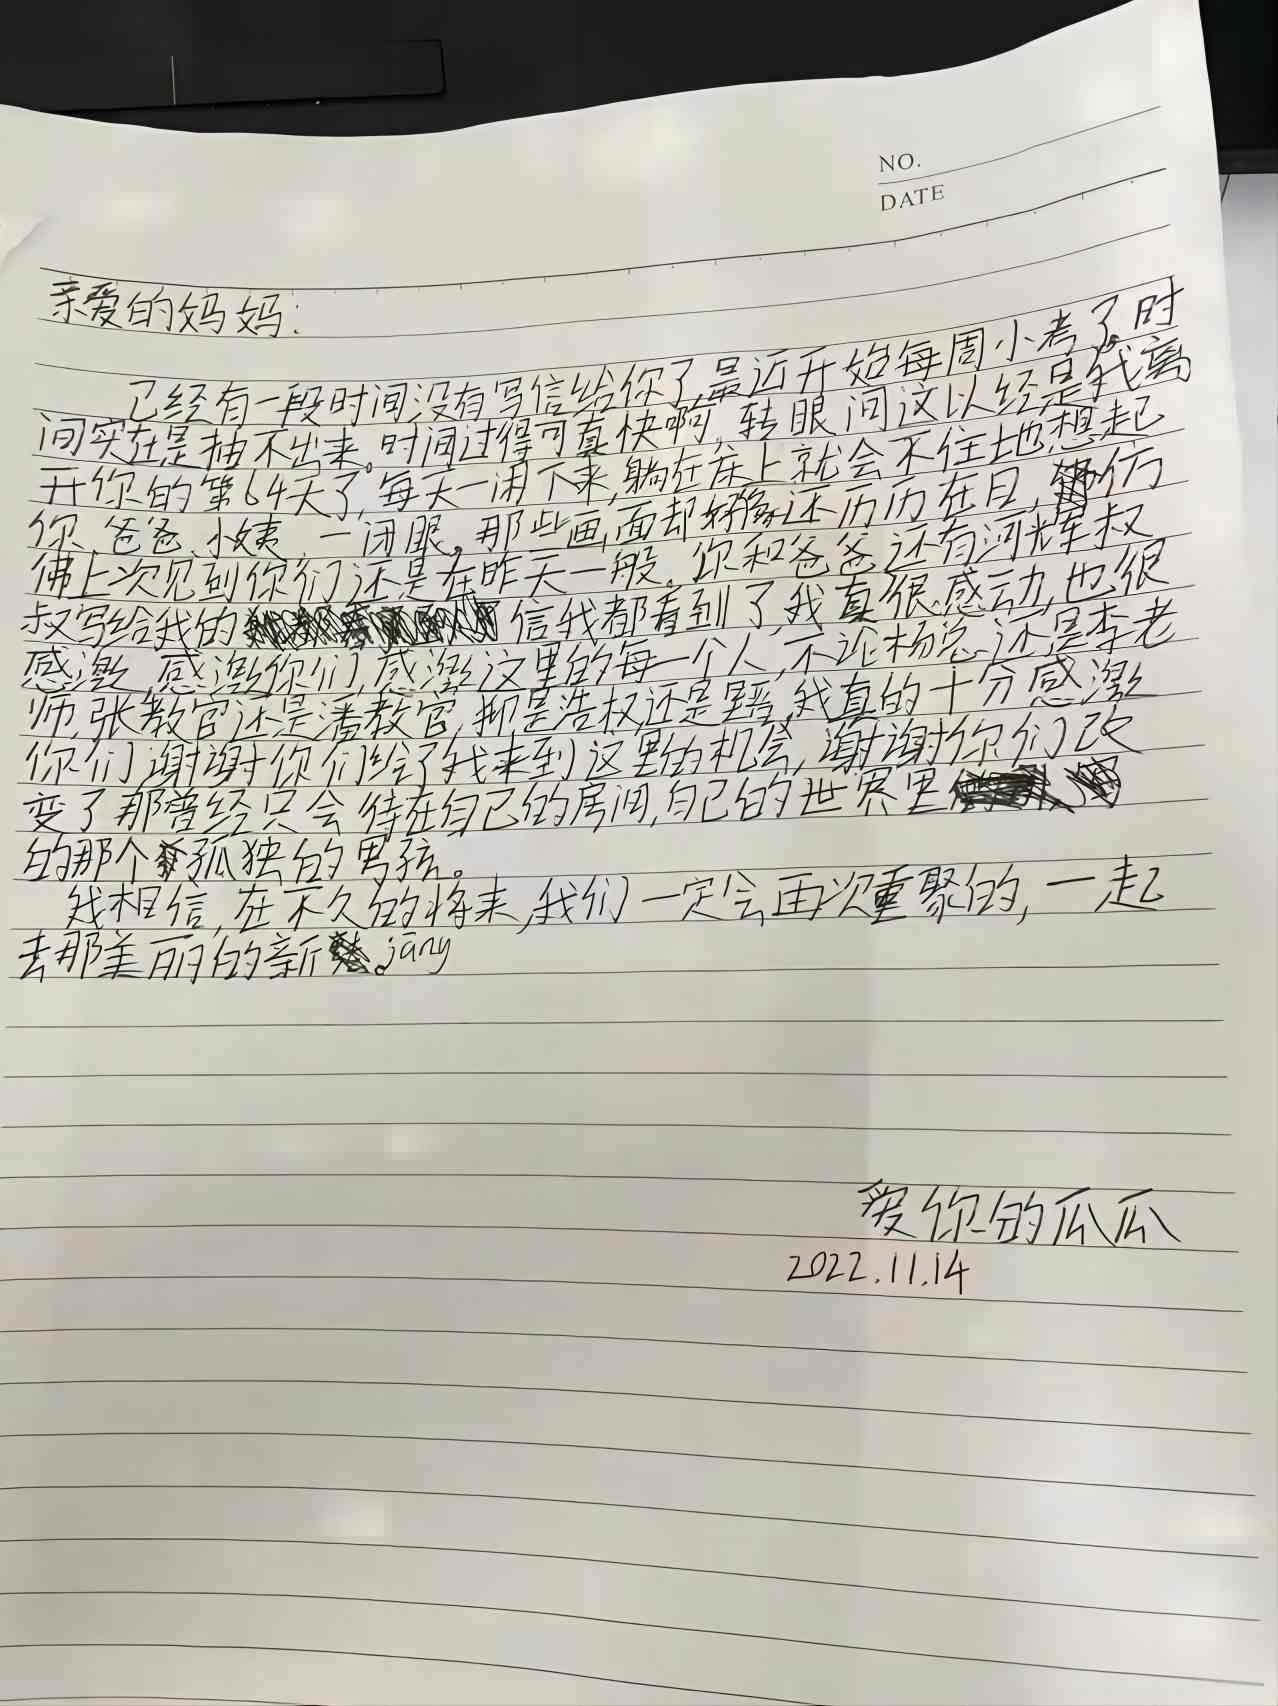 NO.
DATE
亲爱的妈妈：
已经有一段时间没有写信给你了,最近开始每周小考了。时
间实在是抽不出来。时间过得可真快啊,转眼间这以经是我离
开你的第64天了,每天一闲下来,躺在床上就会不住地想起
你、爸爸、小姨,一闭眼。那些画,面却好像还历历在目,仿
佛上次见到你们还是在昨天一般。你和爸爸还有河辉叔
叔写给我的信我都看到了,我真很感动,也很
感激,感激你们,感激这里的每一个人,不论杨总还是李老
师,张教官还是潘教官,抑是浩权还是,我真的十分感激
你们谢谢你们给了我来到这里的机会,谢谢你们改
变了那曾经只会待在自己的房间,自己的世界里
的那个孤独的男孩。
我相信,在不久的将来,我们一定会再次重聚的,一起
去那美丽的新。jāng
爱你的瓜瓜
2022.11.14